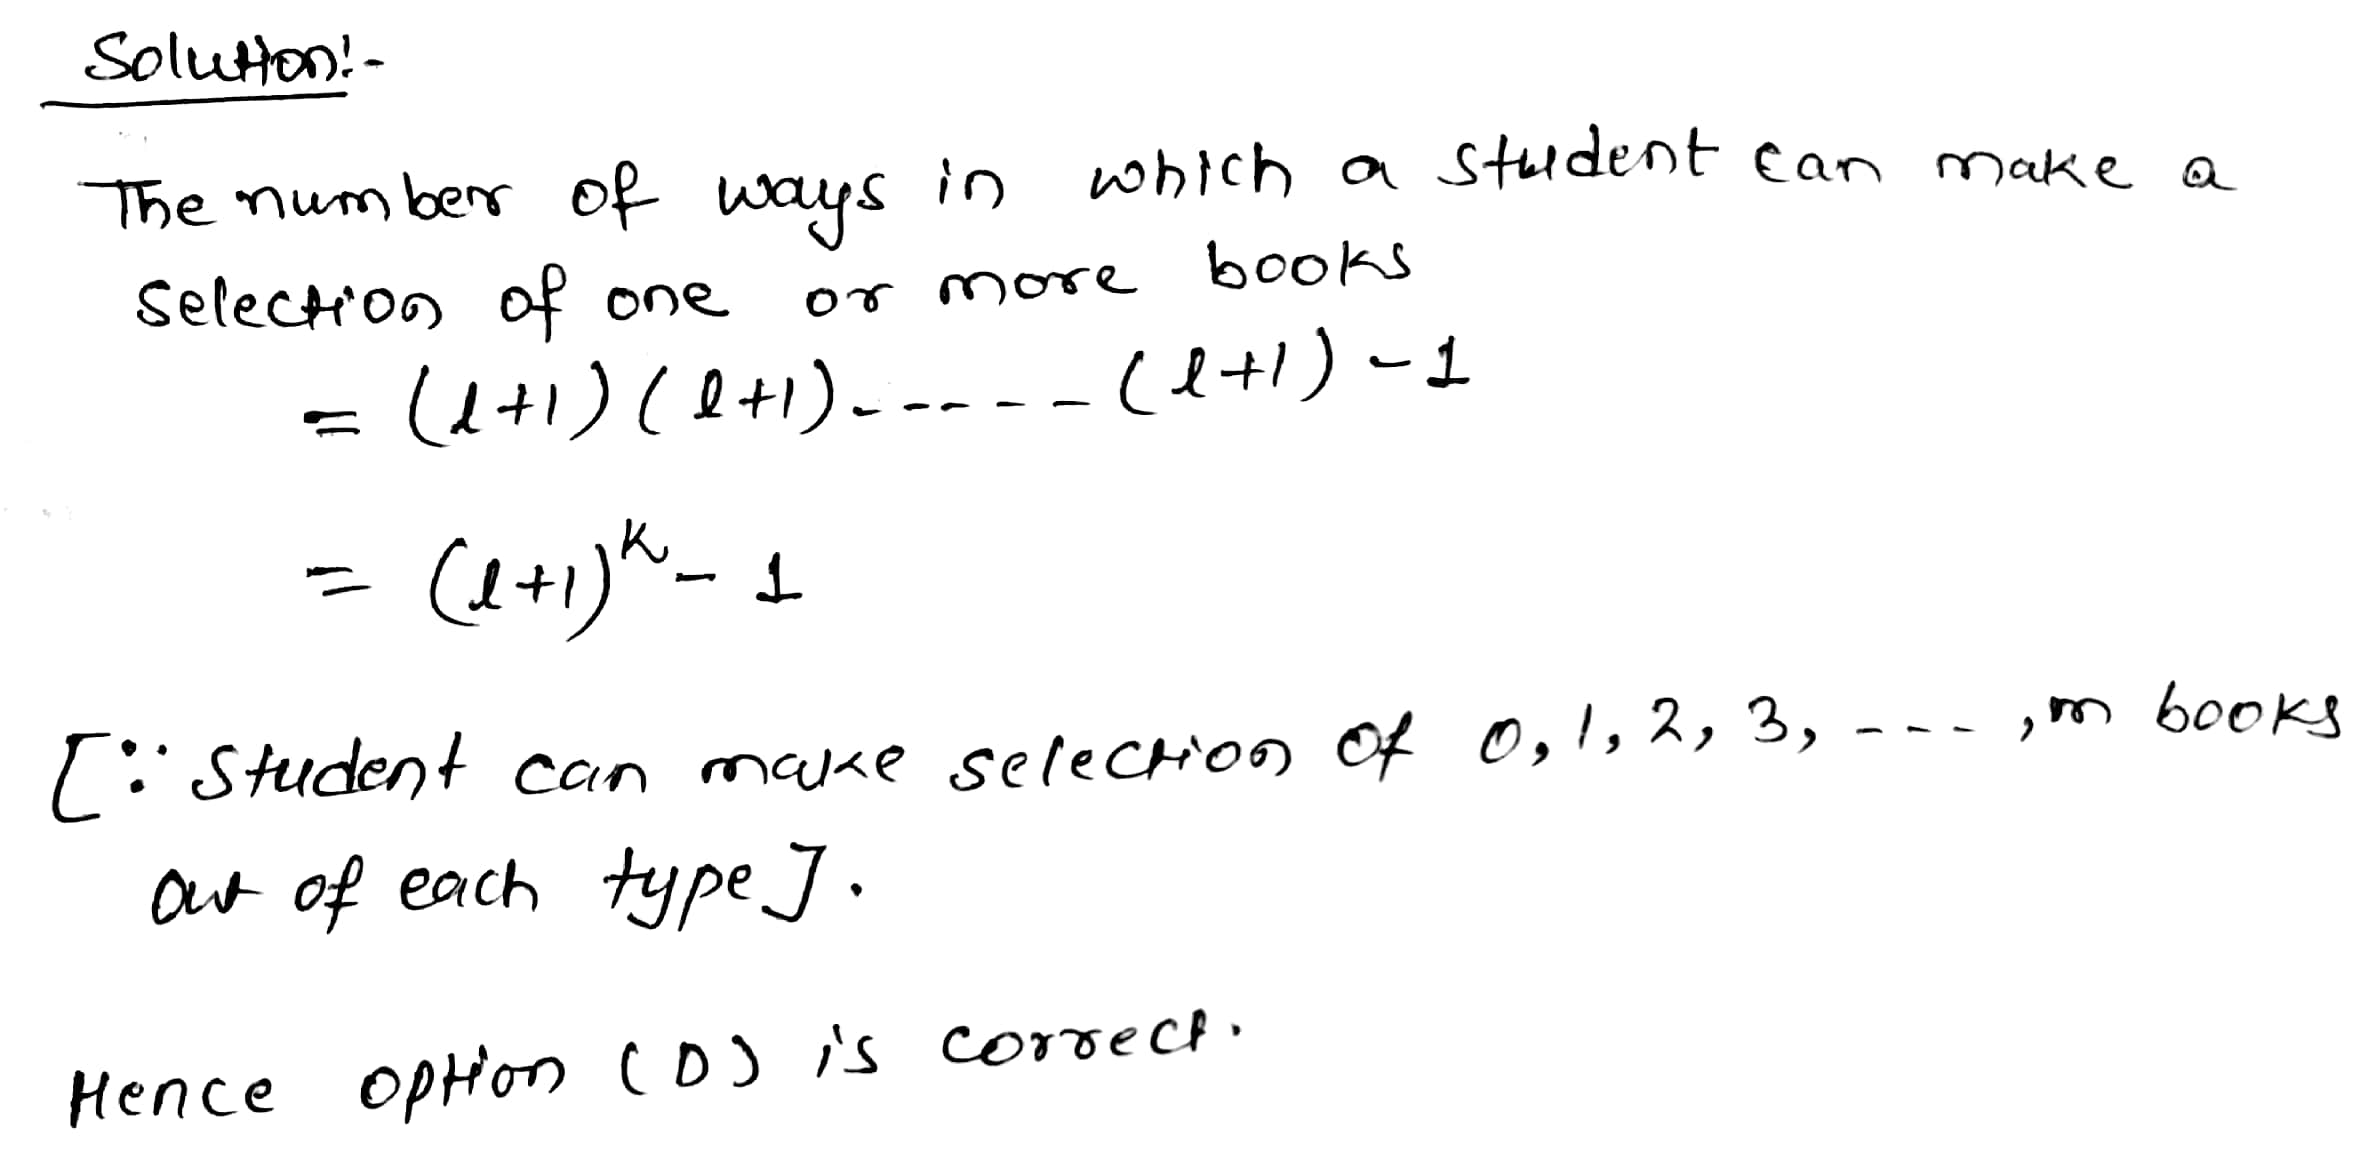 Solution:-
The number of ways in which a student can make a
selection of one or more books
= (l+1)(l+1)------(l+1)-1
= (l+1)^K - 1
[∵ Student can make selection of 0,1,2,3,---,m books
out of each type].
Hence option (D) is correct.